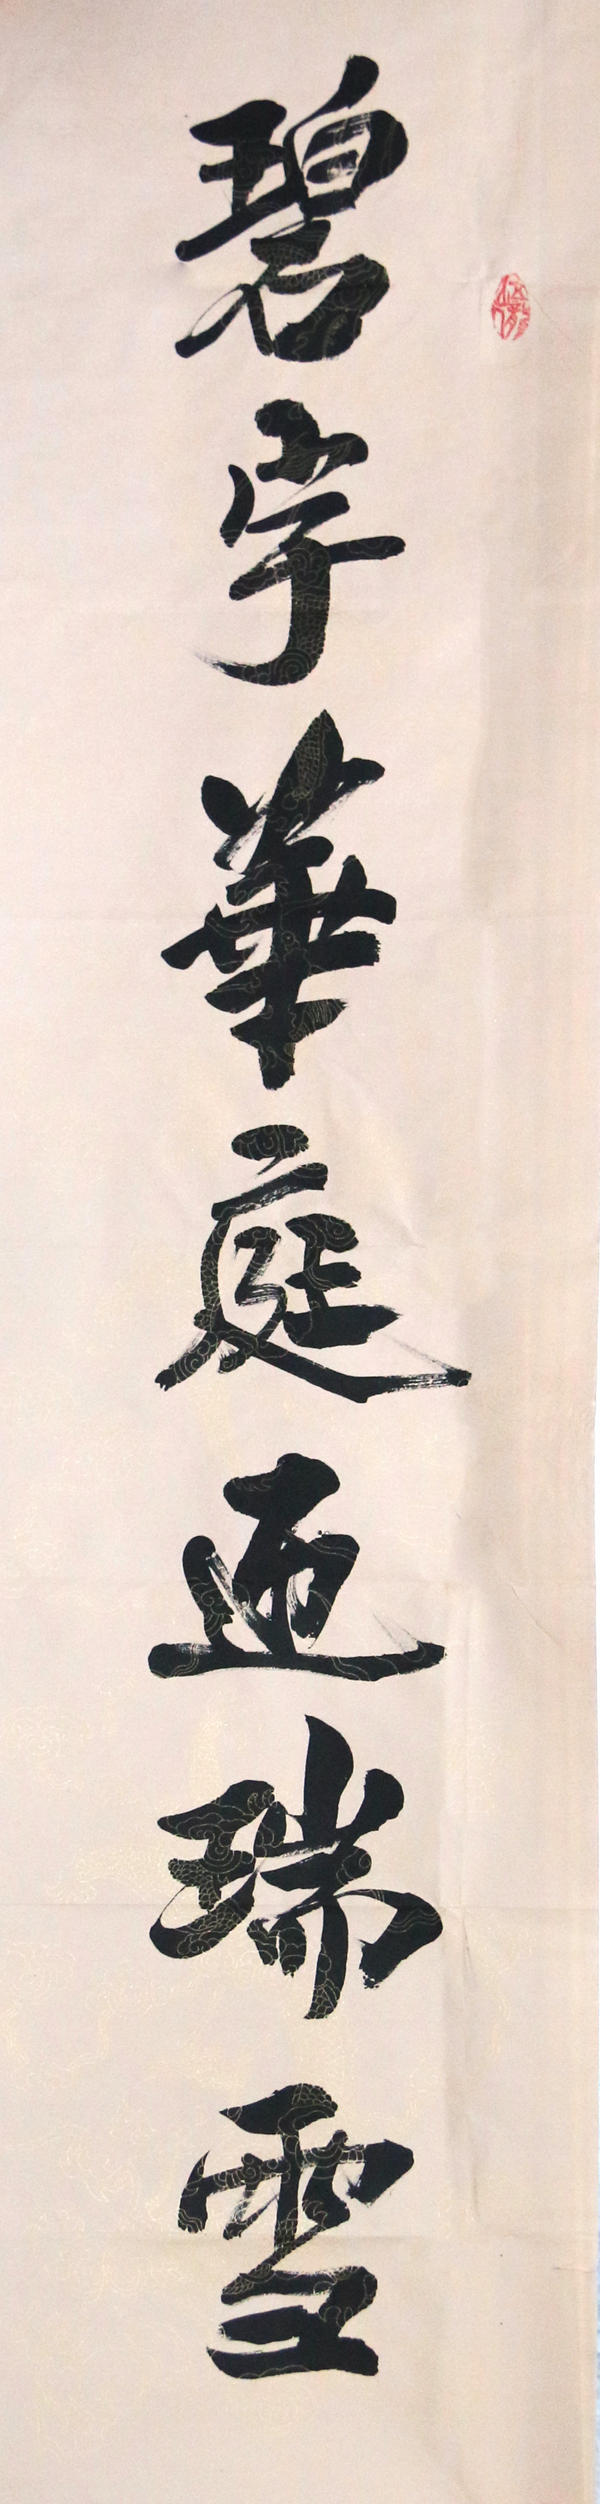 碧宇華庭迎瑞雪